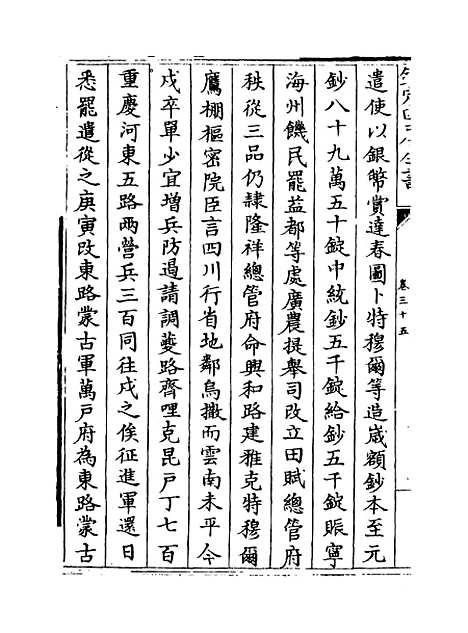 欽定四庫全書
卷三十五
遣使以銀幣賞達春圖卜特穆爾等造歲額鈔本至元
鈔八十九萬五十錠中統鈔五千錠給鈔五千錠賑寧
海州饑民罷益都等處廣農提舉司改立田賦總管府
秩從三品仍隷隆祥總管府命興和路建雅克特穆爾
鷹棚樞密院臣言四川行省地鄰烏撒而雲南未平今
戍卒單少宜增兵防遏請調夔路齊哩克昆戶丁七百
重慶河東五路兩營兵三百同往戍之俟征進軍還日
悉罷遣從之庚寅改東路蒙古軍萬戶府為東路蒙古